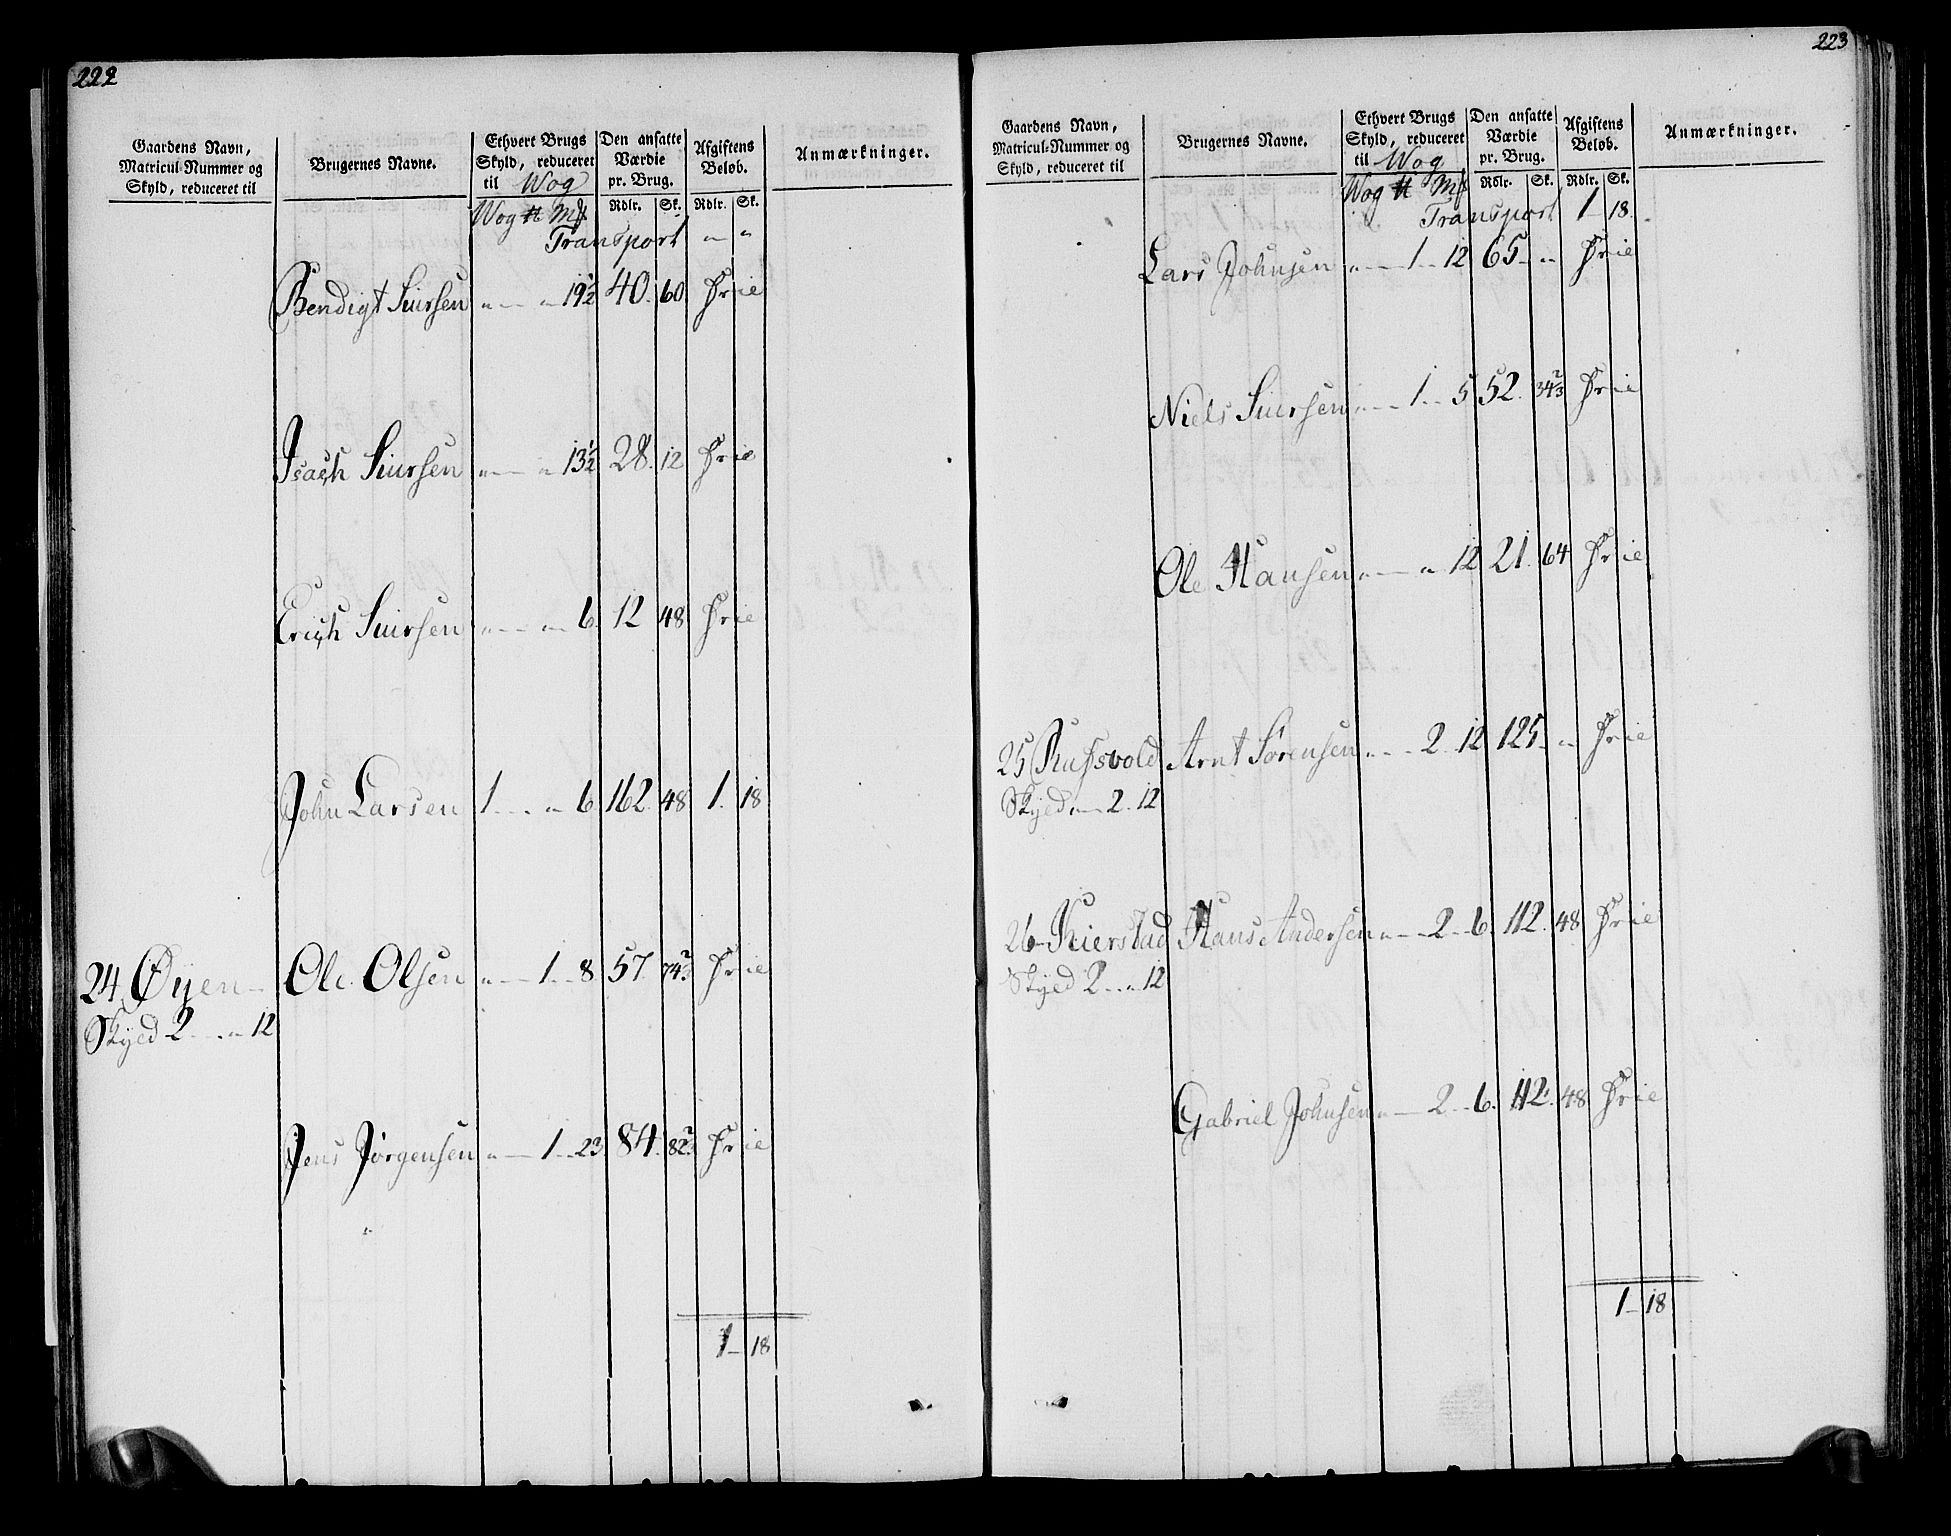 222
Gaardens Navn, Matricul-Nummer og Skyld, reduceret til
Brugernes Navne.
Ethvert Brugs Skyld, reduceret til Wog
Den ansatte Værdie pr. Brug.
Afgiftens Beløb.
Anmærkninger.
Wog ℔ Mk Rdlr. Sk. Rdlr. Sk.
Transport „ — „
Bendigt Siursen „ — „ 19½ 40. 60. Frie
Isach Siursen „ — „ 13½ 28. 12 Frie
Erich Siursen „ — „ 6. 12 48 Frie
John Larsen 1 .. „ 6. 162. 48 1. 18
24 Øyen — Ole Olsen „ — 1 .. 8. 57. 74⅔ Frie
Skyld 2 .. „ 12
Jens Jørgensen „ — 1 .. 23 84. 82⅔ Frie
1 — 18
223
Gaardens Navn, Matricul-Nummer og Skyld, reduceret til
Brugernes Navne.
Ethvert Brugs Skyld, reduceret til Wog
Den ansatte Værdie pr. Brug.
Afgiftens Beløb.
Anmærkninger.
Wog ℔ Mk Rdlr. Sk. Rdlr. Sk.
Transport 1 — 18.
Lars Johnsen „ — 1 .. 12 65 — „ Frie
Niels Siursen „ — 1 .. 5 52. 34⅔ Frie
Ole Hansen „ — „ 12 21. 64 Frie
25 Russvold Arnt Sørensen „ — 2 .. 12 125 — „ Frie
Skyld „ — 2 .. 12
26 — Kierstad Hans Andersen „ — 2 — 6. 112. 48 Frie
Skyld 2 .. „ 12
Gabriel Johnsen „ — 2 — 6. 112. 48 Frie
1 — 18